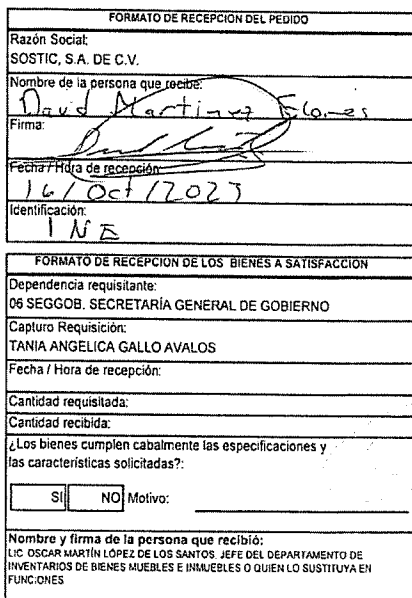 FORMATO DE RECEPCION DEL PEDIDO
Razón Social:
SOSTIC, S.A. DE C.V.
Nombre de la persona que recibe:
David Martinez Flores
Firma:
Fecha / Hora de recepción:
16/Oct/2023
Identificación:
INE
FORMATO DE RECEPCION DE LOS BIENES A SATISFACCION
Dependencia requisitante:
06 SEGGOB. SECRETARÍA GENERAL DE GOBIERNO
Capturo Requisición:
TANIA ANGELICA GALLO AVALOS
Fecha / Hora de recepción:
Cantidad requisitada:
Cantidad recibida:
¿Los bienes cumplen cabalmente las especificaciones y
las características solicitadas?:
SI NO Motivo:
Nombre y firma de la persona que recibió:
LIC. OSCAR MARTÍN LÓPEZ DE LOS SANTOS. JEFE DEL DEPARTAMENTO DE
INVENTARIOS DE BIENES MUEBLES E INMUEBLES O QUIEN LO SUSTITUYA EN
FUNCIONES